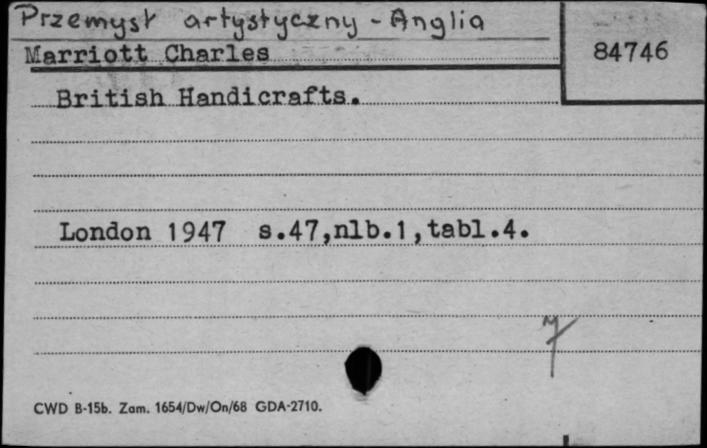 Przemysł artystyczny - Anglia
Marriott Charles
84746
British Handicrafts.
London 1947 s.47,nlb.1,tabl.4.
CWD B-15b. Zam. 1654/Dw/On/68 GDA-2710.